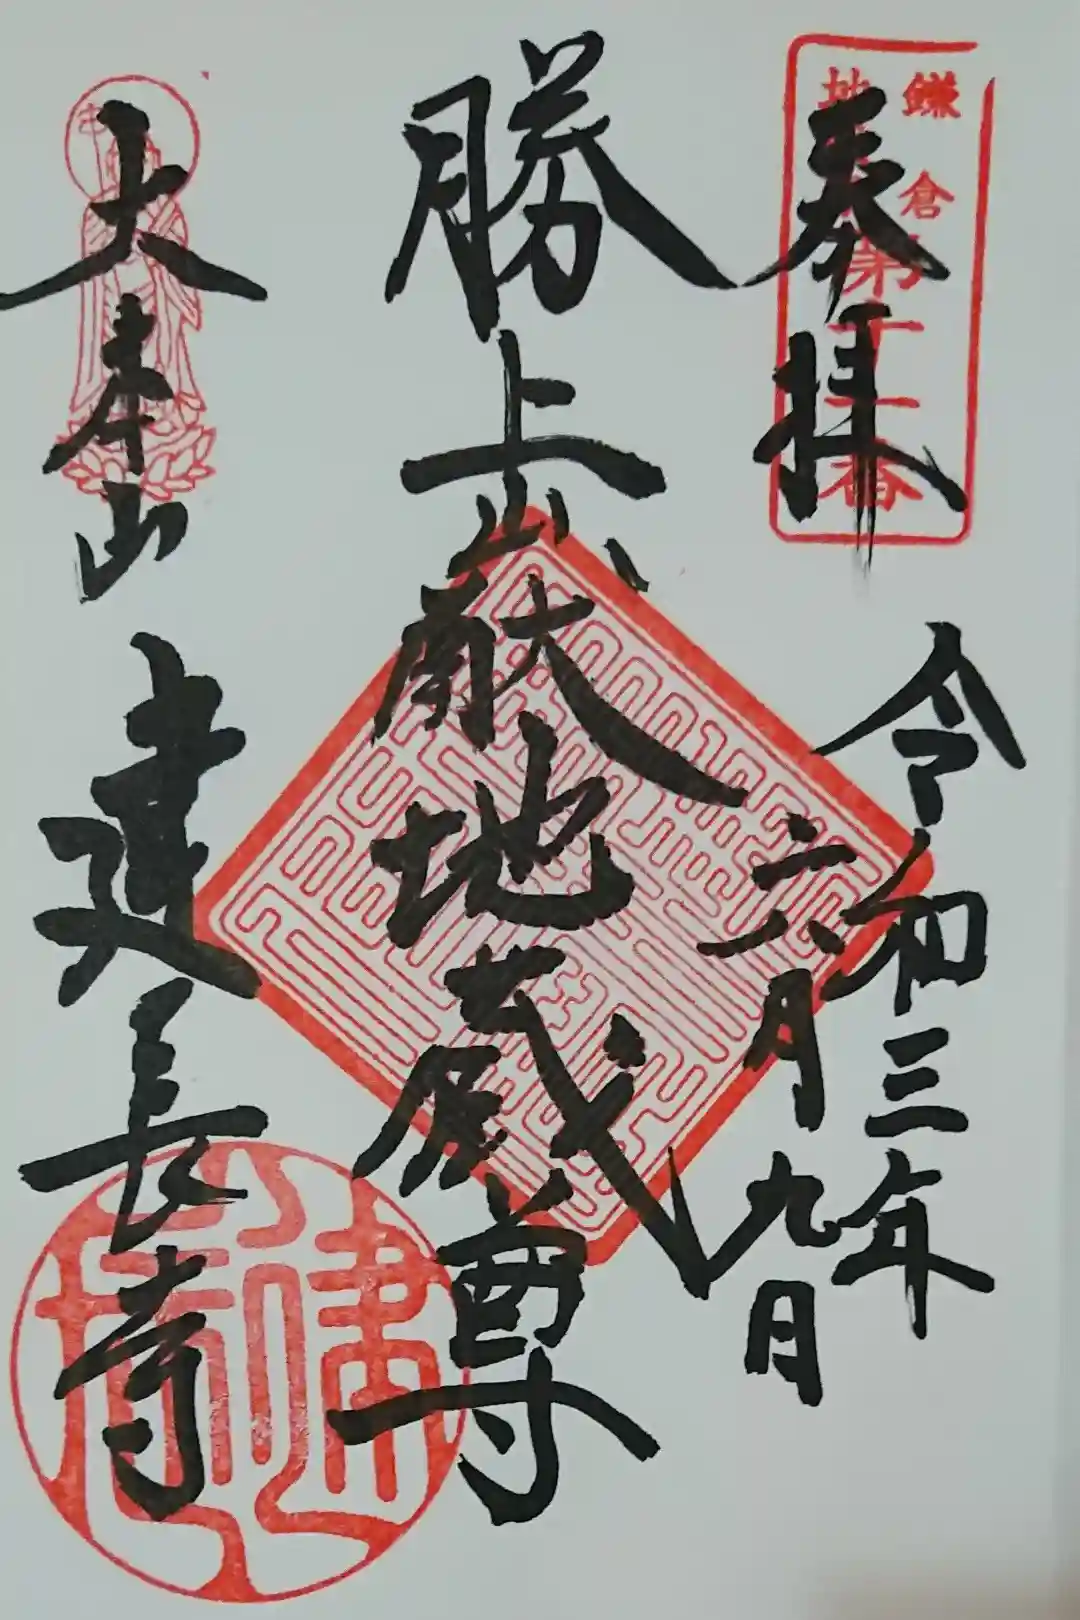 奉拝
鎌倉
地
第十一番
令和三年
六月九日
勝上嶽地蔵尊
大本山
建長寺